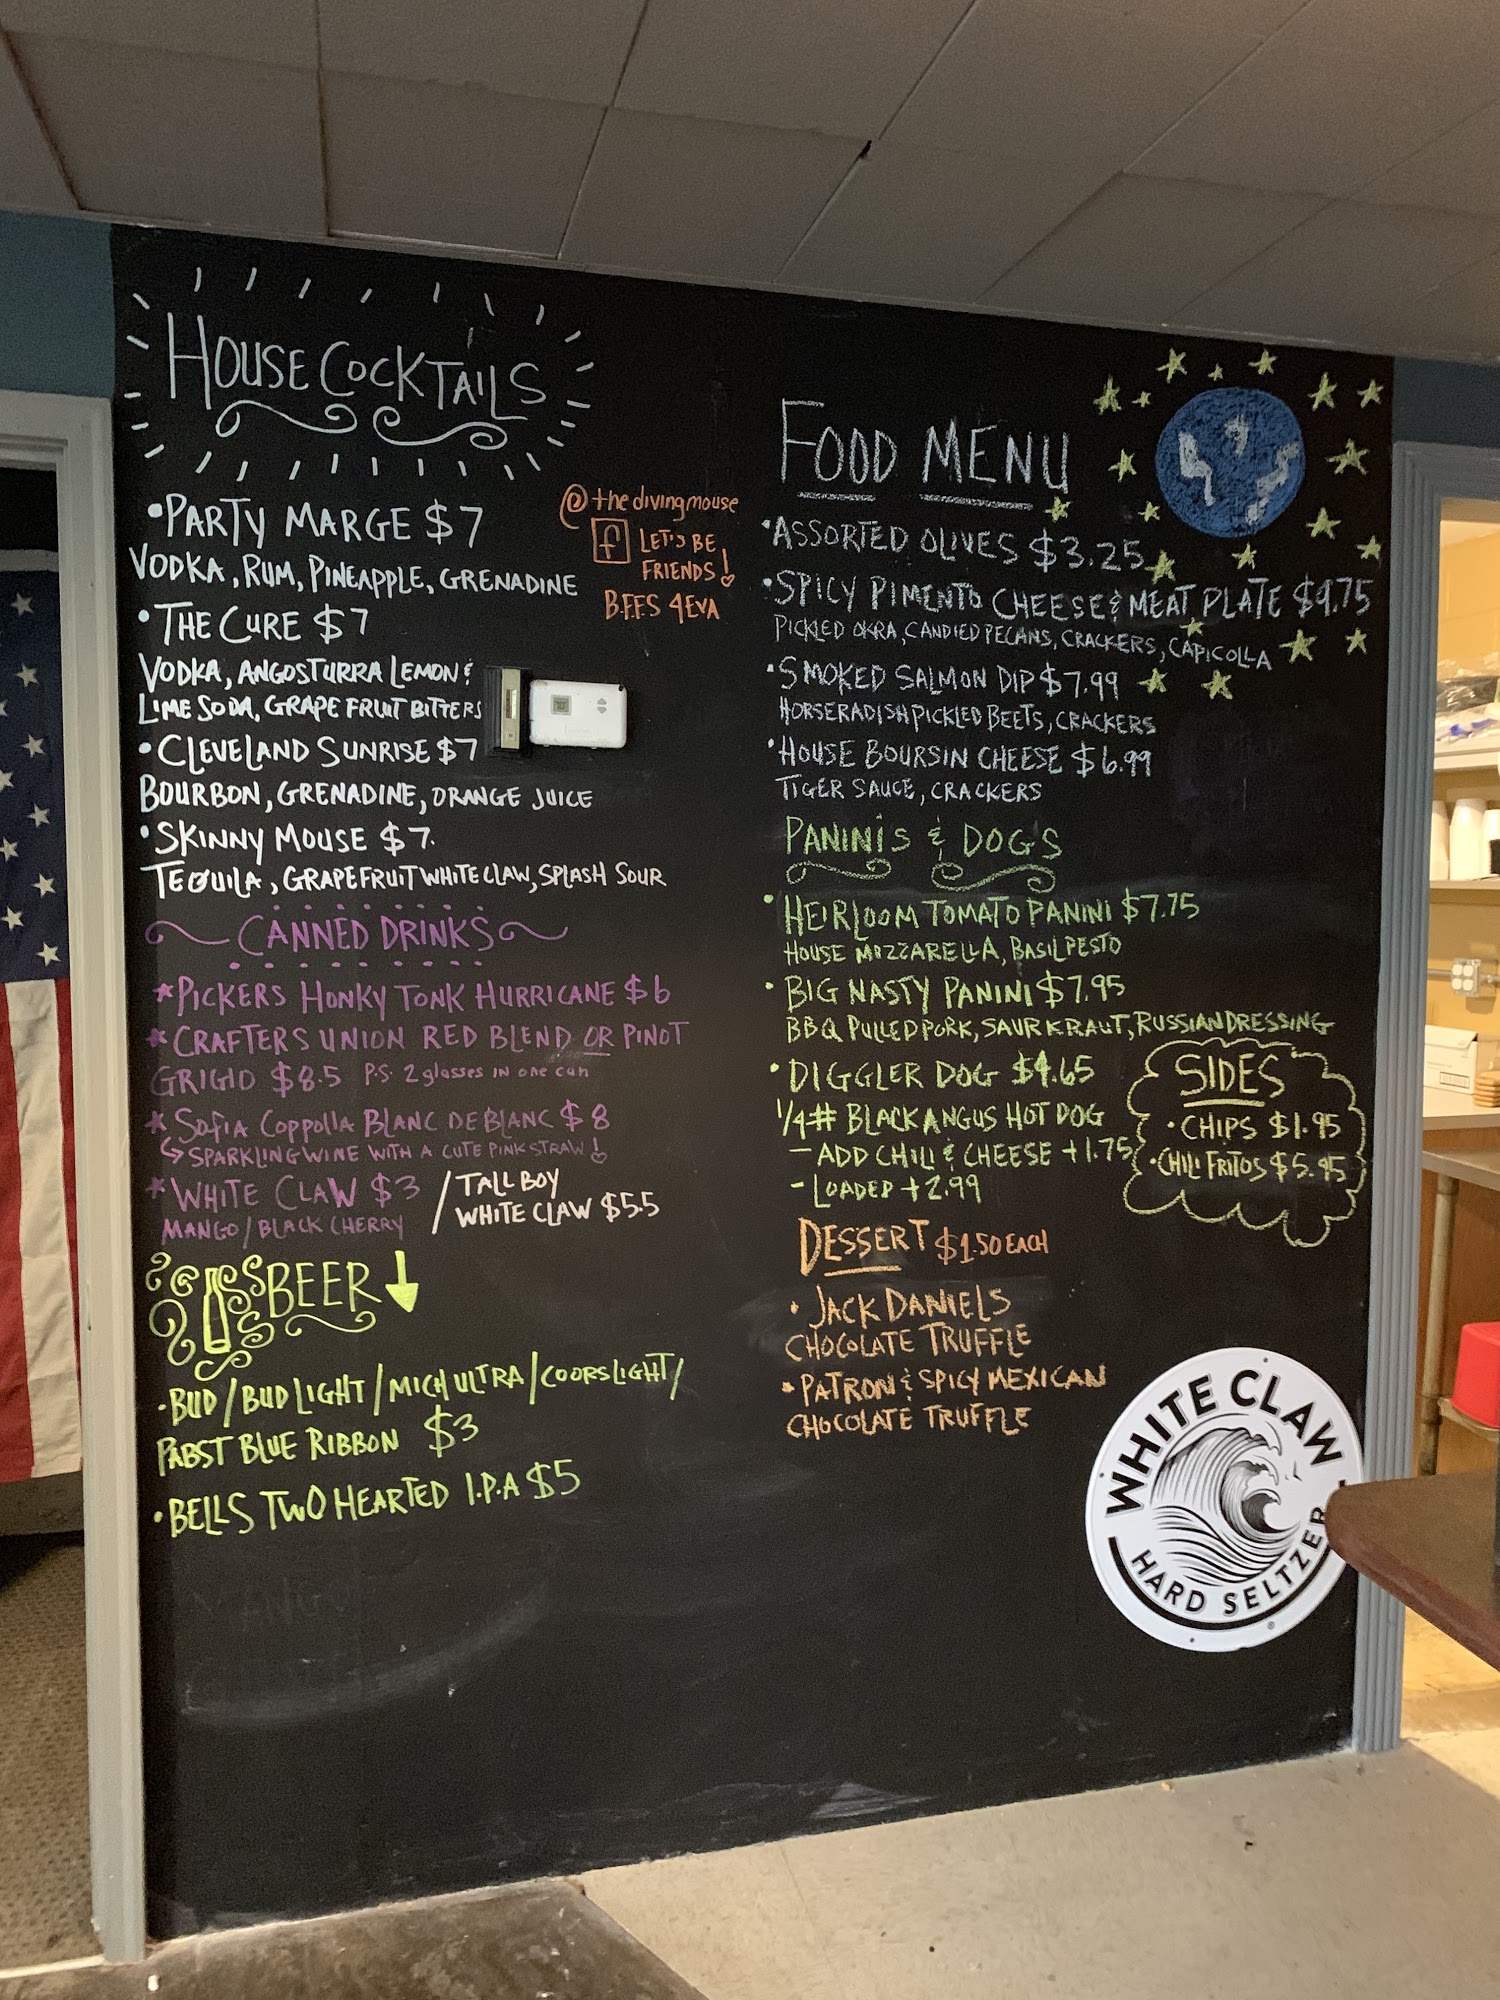 HOUSE COCKTAILS
•PARTY MARGE $7
VODKA, RUM, PINEAPPLE, GRENADINE
•THE CURE $7
VODKA, ANGOSTURRA LEMON &
LIME SODA, GRAPE FRUIT BITTERS
•CLEVELAND SUNRISE $7
BOURBON, GRENADINE, ORANGE JUICE
•SKINNY MOUSE $7.
TEQUILA, GRAPEFRUIT WHITE CLAW, SPLASH SOUR
@thedivingmouse
f LET'S BE
FRIENDS!
B.F.F.S 4EVA
CANNED DRINKS
*PICKERS HONKY TONK HURRICANE $6
*CRAFTERS UNION RED BLEND OR PINOT
GRIGIO $8.5 P.S. 2 glasses IN one can
*SOFIA COPPOLLA BLANC DE BLANC $8
SPARKLING WINE WITH A CUTE PINK STRAW!
*WHITE CLAW $3 / TALL BOY
MANGO/BLACK CHERRY WHITE CLAW $5.5
BEER
•BUD/BUD LIGHT/MICH ULTRA/COORS LIGHT/
PABST BLUE RIBBON $3
•BELLS TWO HEARTED I.P.A $5
FOOD MENU
•ASSORTED OLIVES $3.25
•SPICY PIMENTO CHEESE & MEAT PLATE $9.75
PICKLED OKRA, CANDIED PECANS, CRACKERS, CAPICOLLA
•SMOKED SALMON DIP $7.99
HORSERADISH PICKLED BEETS, CRACKERS
•HOUSE BOURSIN CHEESE $6.99
TIGER SAUCE, CRACKERS
PANINI'S & DOG'S
•HEIRLOOM TOMATO PANINI $7.75
HOUSE MOZZARELLA, BASIL PESTO
•BIG NASTY PANINI $7.95
BBQ PULLED PORK, SAURKRAUT, RUSSIAN DRESSING
•DIGGLER DOG $4.65
1/4# BLACK ANGUS HOT DOG
- ADD CHILI & CHEESE +1.75
- LOADED +2.99
SIDES
•CHIPS $1.95
•CHILI FRITOS $5.95
DESSERT $1.50 EACH
•JACK DANIELS
CHOCOLATE TRUFFLE
•PATRON & SPICY MEXICAN
CHOCOLATE TRUFFLE
WHITE CLAW
HARD SELTZER